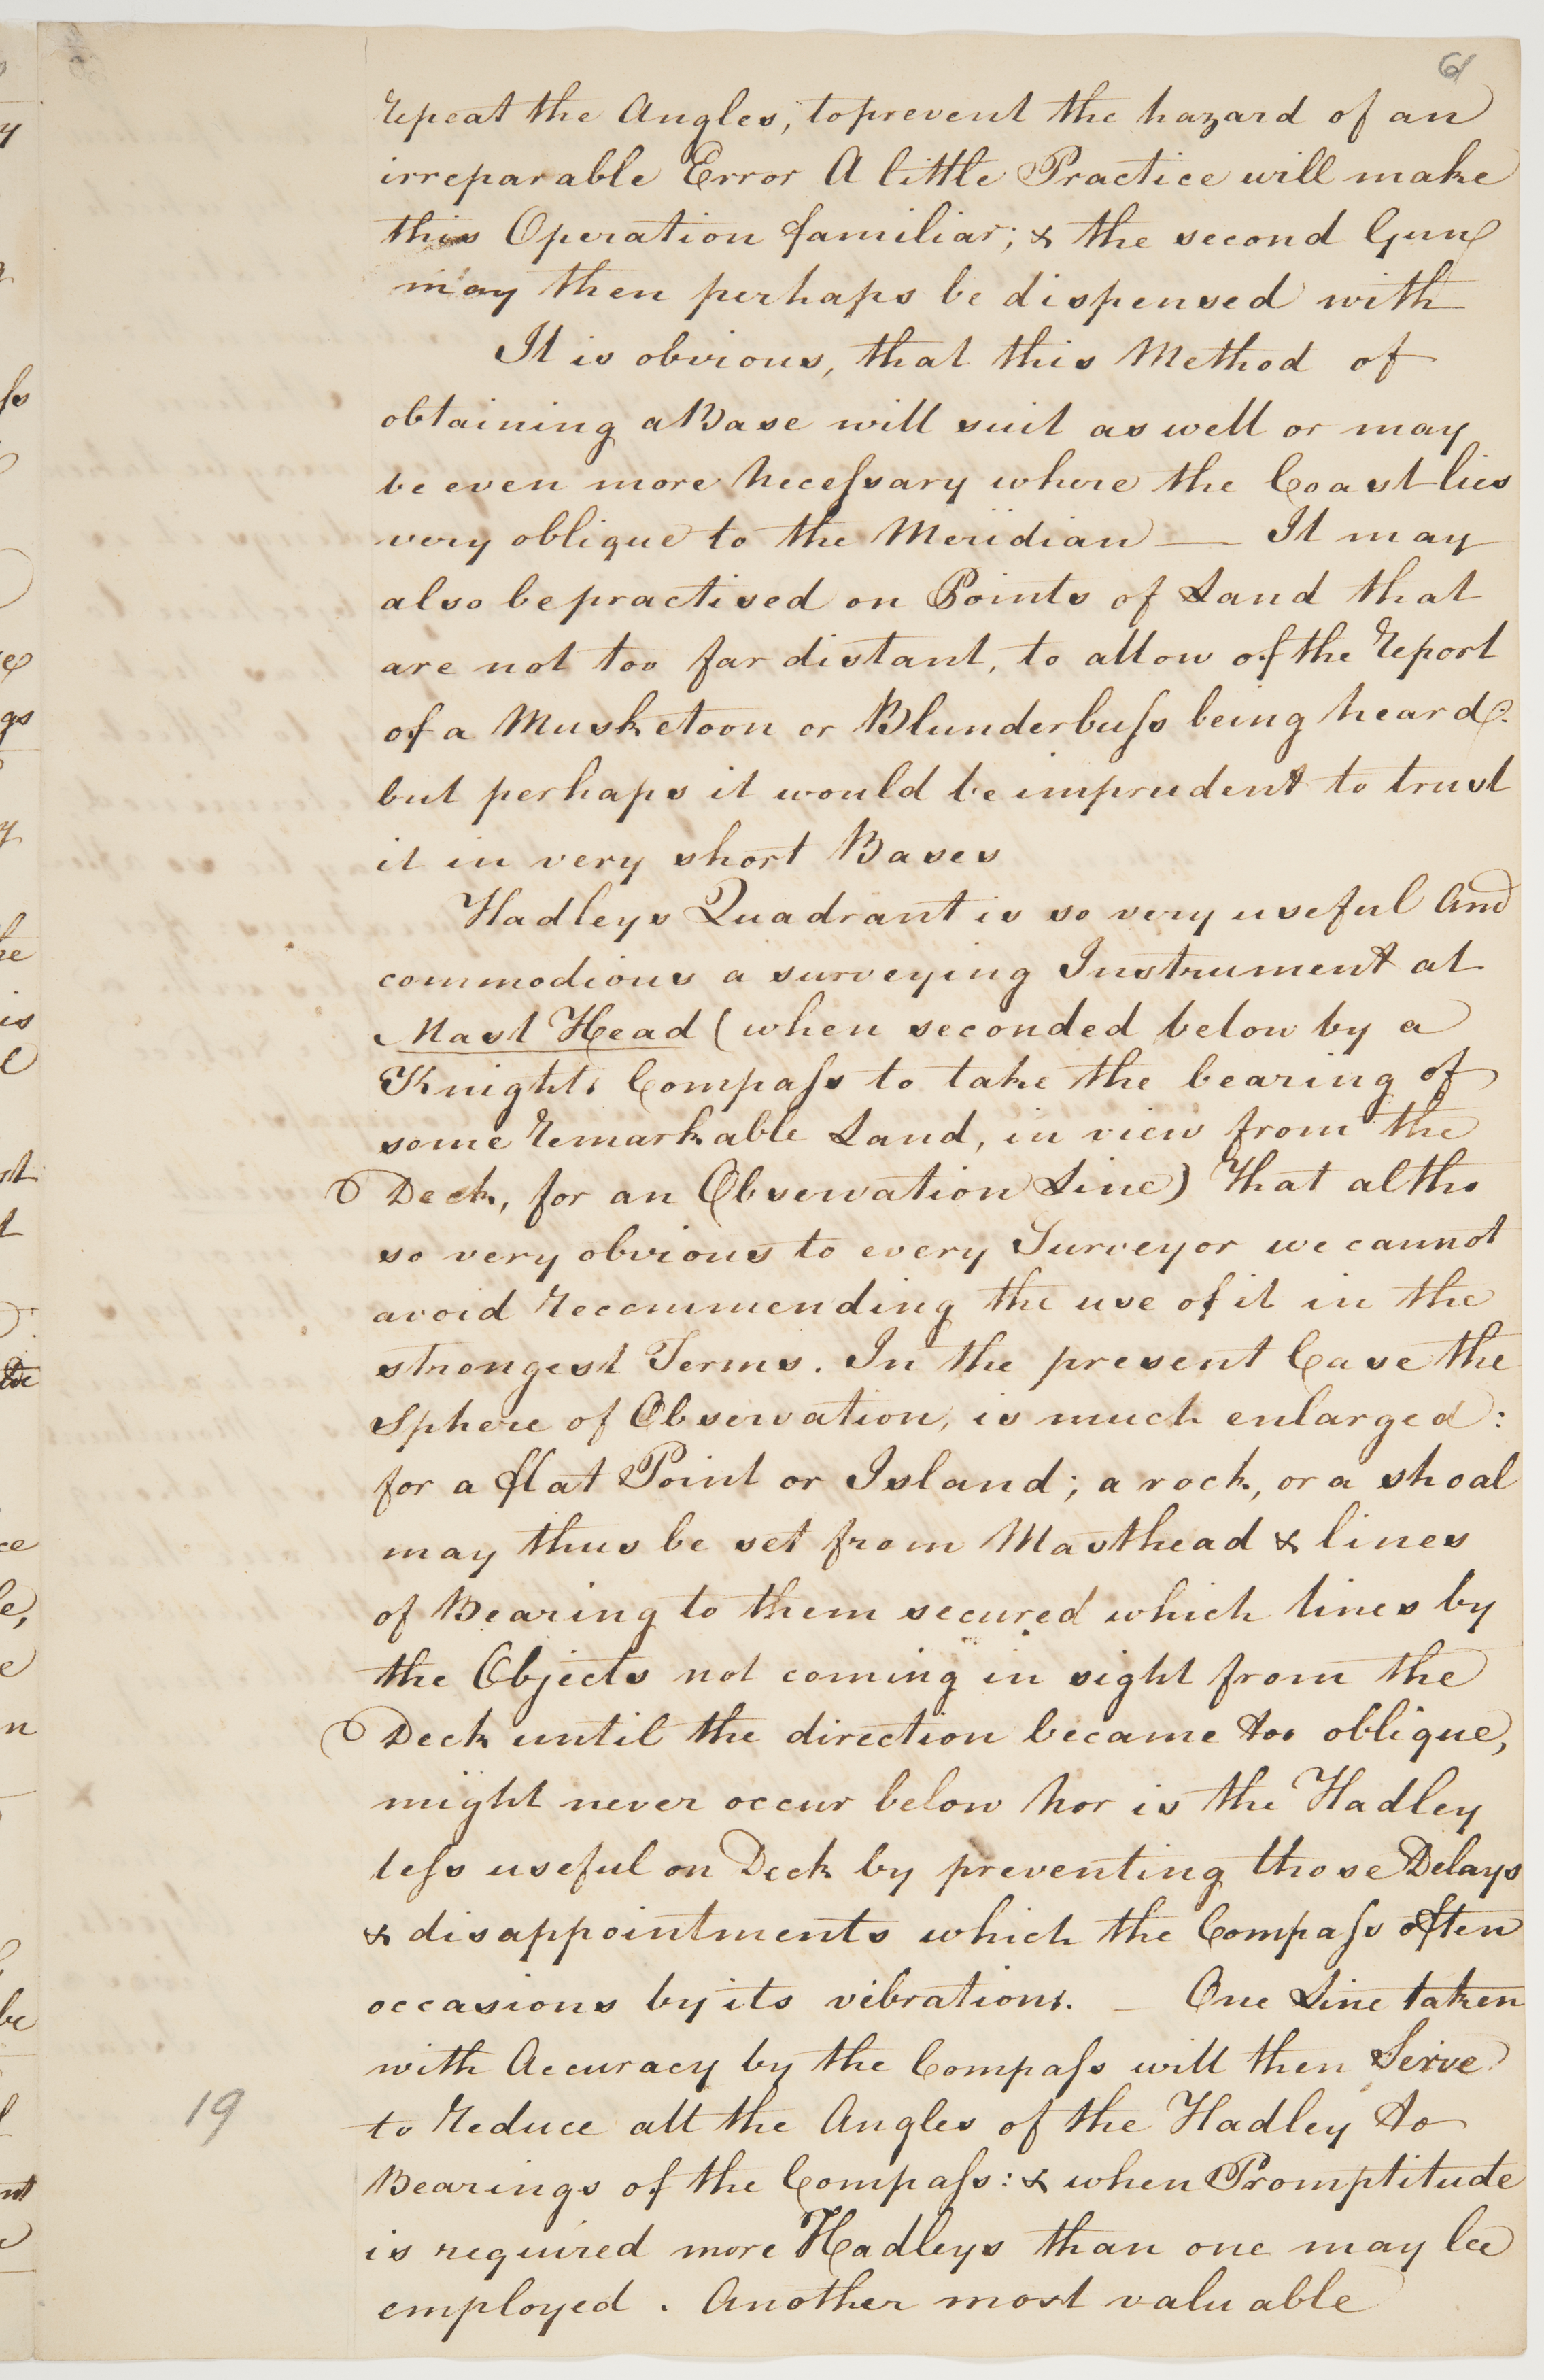 61
repeat the Angles, to prevent the hazard of an
irreparable Error A little Practice will make
this Operation familiar; & the second Gun
may then perhaps be dispensed with
It is obvious, that this Method of
obtaining a Base will suit as well or may
be even more neceſsary where the Coast lies
very oblique to the Meridian — It may
also be practised on Points of Land that
are not too far distant, to allow of the report
of a Musketoon or Blunderbuſs being heard.
but perhaps it would be imprudent to trust
it in very short Bases
Hadleys Quadrant is so very useful And
commodious a surveying Instrument at
Mast Head (when seconded below by a
Knights Compaſs to take the bearing of
some remarkable Land, in view from the
Deck, for an Observation Line) That altho
so very obvious to every Surveyor we cannot
avoid recommending the use of it in the
strongest Terms. In the present Case the
Sphere of Observation, is much enlarged:
for a flat Point or Island; a rock, or a shoal
may thus be set from Masthead & lines
of Bearing to them secured which lines by
the Objects not coming in sight from the
Deck until the direction became too oblique,
might never occur below nor is the Hadley
leſs useful on Deck by preventing those Delays
& disappointments which the Compaſs often
occasions by its vibrations. — One Line taken
with Accuracy by the Compaſs will then Serve
19
to reduce all the Angles of the Hadley to
Bearings of the Compaſs: & when Promptitude
is required more Hadleys than one may be
employed. Another most valuable